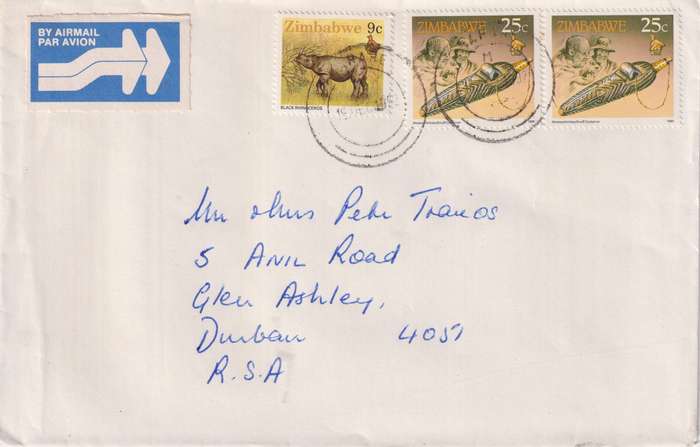 BY AIRMAIL
PAR AVION
Zimbabwe 9c
BLACK RHINOCEROS
ZIMBABWE 25c
ZIMBABWE 25c
Mr & Mrs Peter
5 ANIL ROAD
Glen Ashley,
Durban 4051
R.S.A